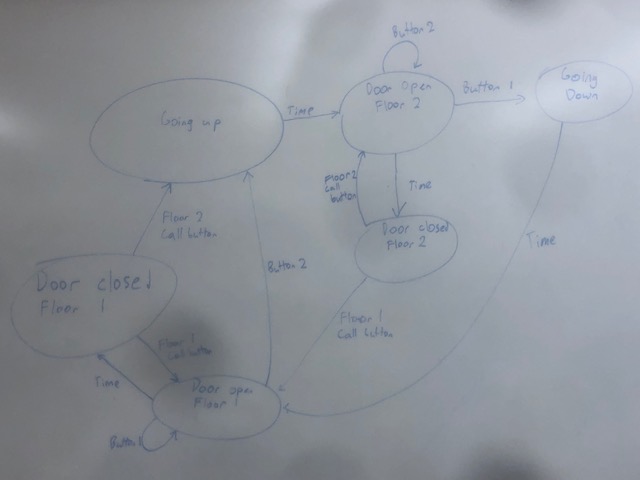 Button 2
Going up
Time
Door open
Floor 2
Button 1
Going
Down
Floor 2
call
button
Time
Floor 2
Call button
Door closed
Floor 2
Time
Button 2
Door closed
Floor 1
Floor 1
Call button
Floor 1
Call button
Time
Door open
Floor 1
Button 1